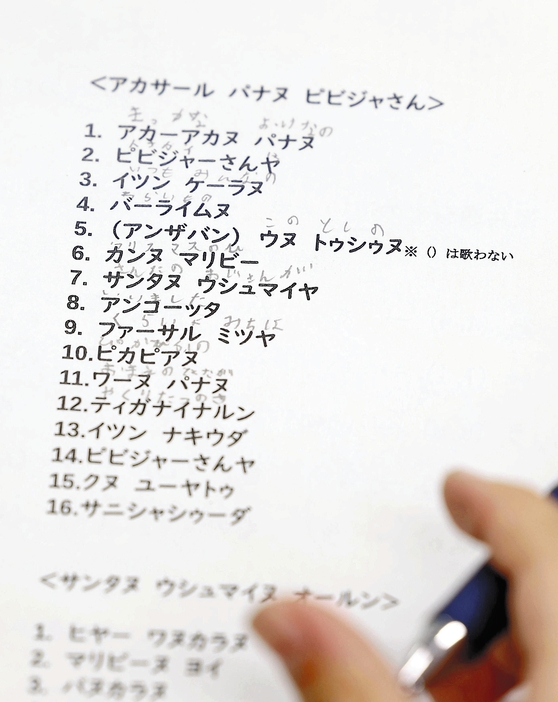 <アカサール パナヌ ピビジャさん>
1. アカーアカヌ パナヌ
2. ピビジャーさんヤ
3. イツン ケーラヌ
4. バーライムヌ
5. (アンザバン) ウヌ トゥシゥヌ※()は歌わない
このとしの
6. カンヌ マリビー
7. サンタヌ ウシュマイヤ
8. アンコーッタ
9. ファーサル ミツヤ
10.ピカピアヌ
11.ワーヌ パナヌ
12.ティガナイナルン
13.イツン ナキウダ
14.ピビジャーさんヤ
15.クヌ ユーヤトゥ
16.サニシャシゥーダ
<サンタヌ ウシュマイヌ オールン>
1. ヒヤー ワヌカラヌ
2. マリビーヌ ヨイ
3. パヌカラヌ